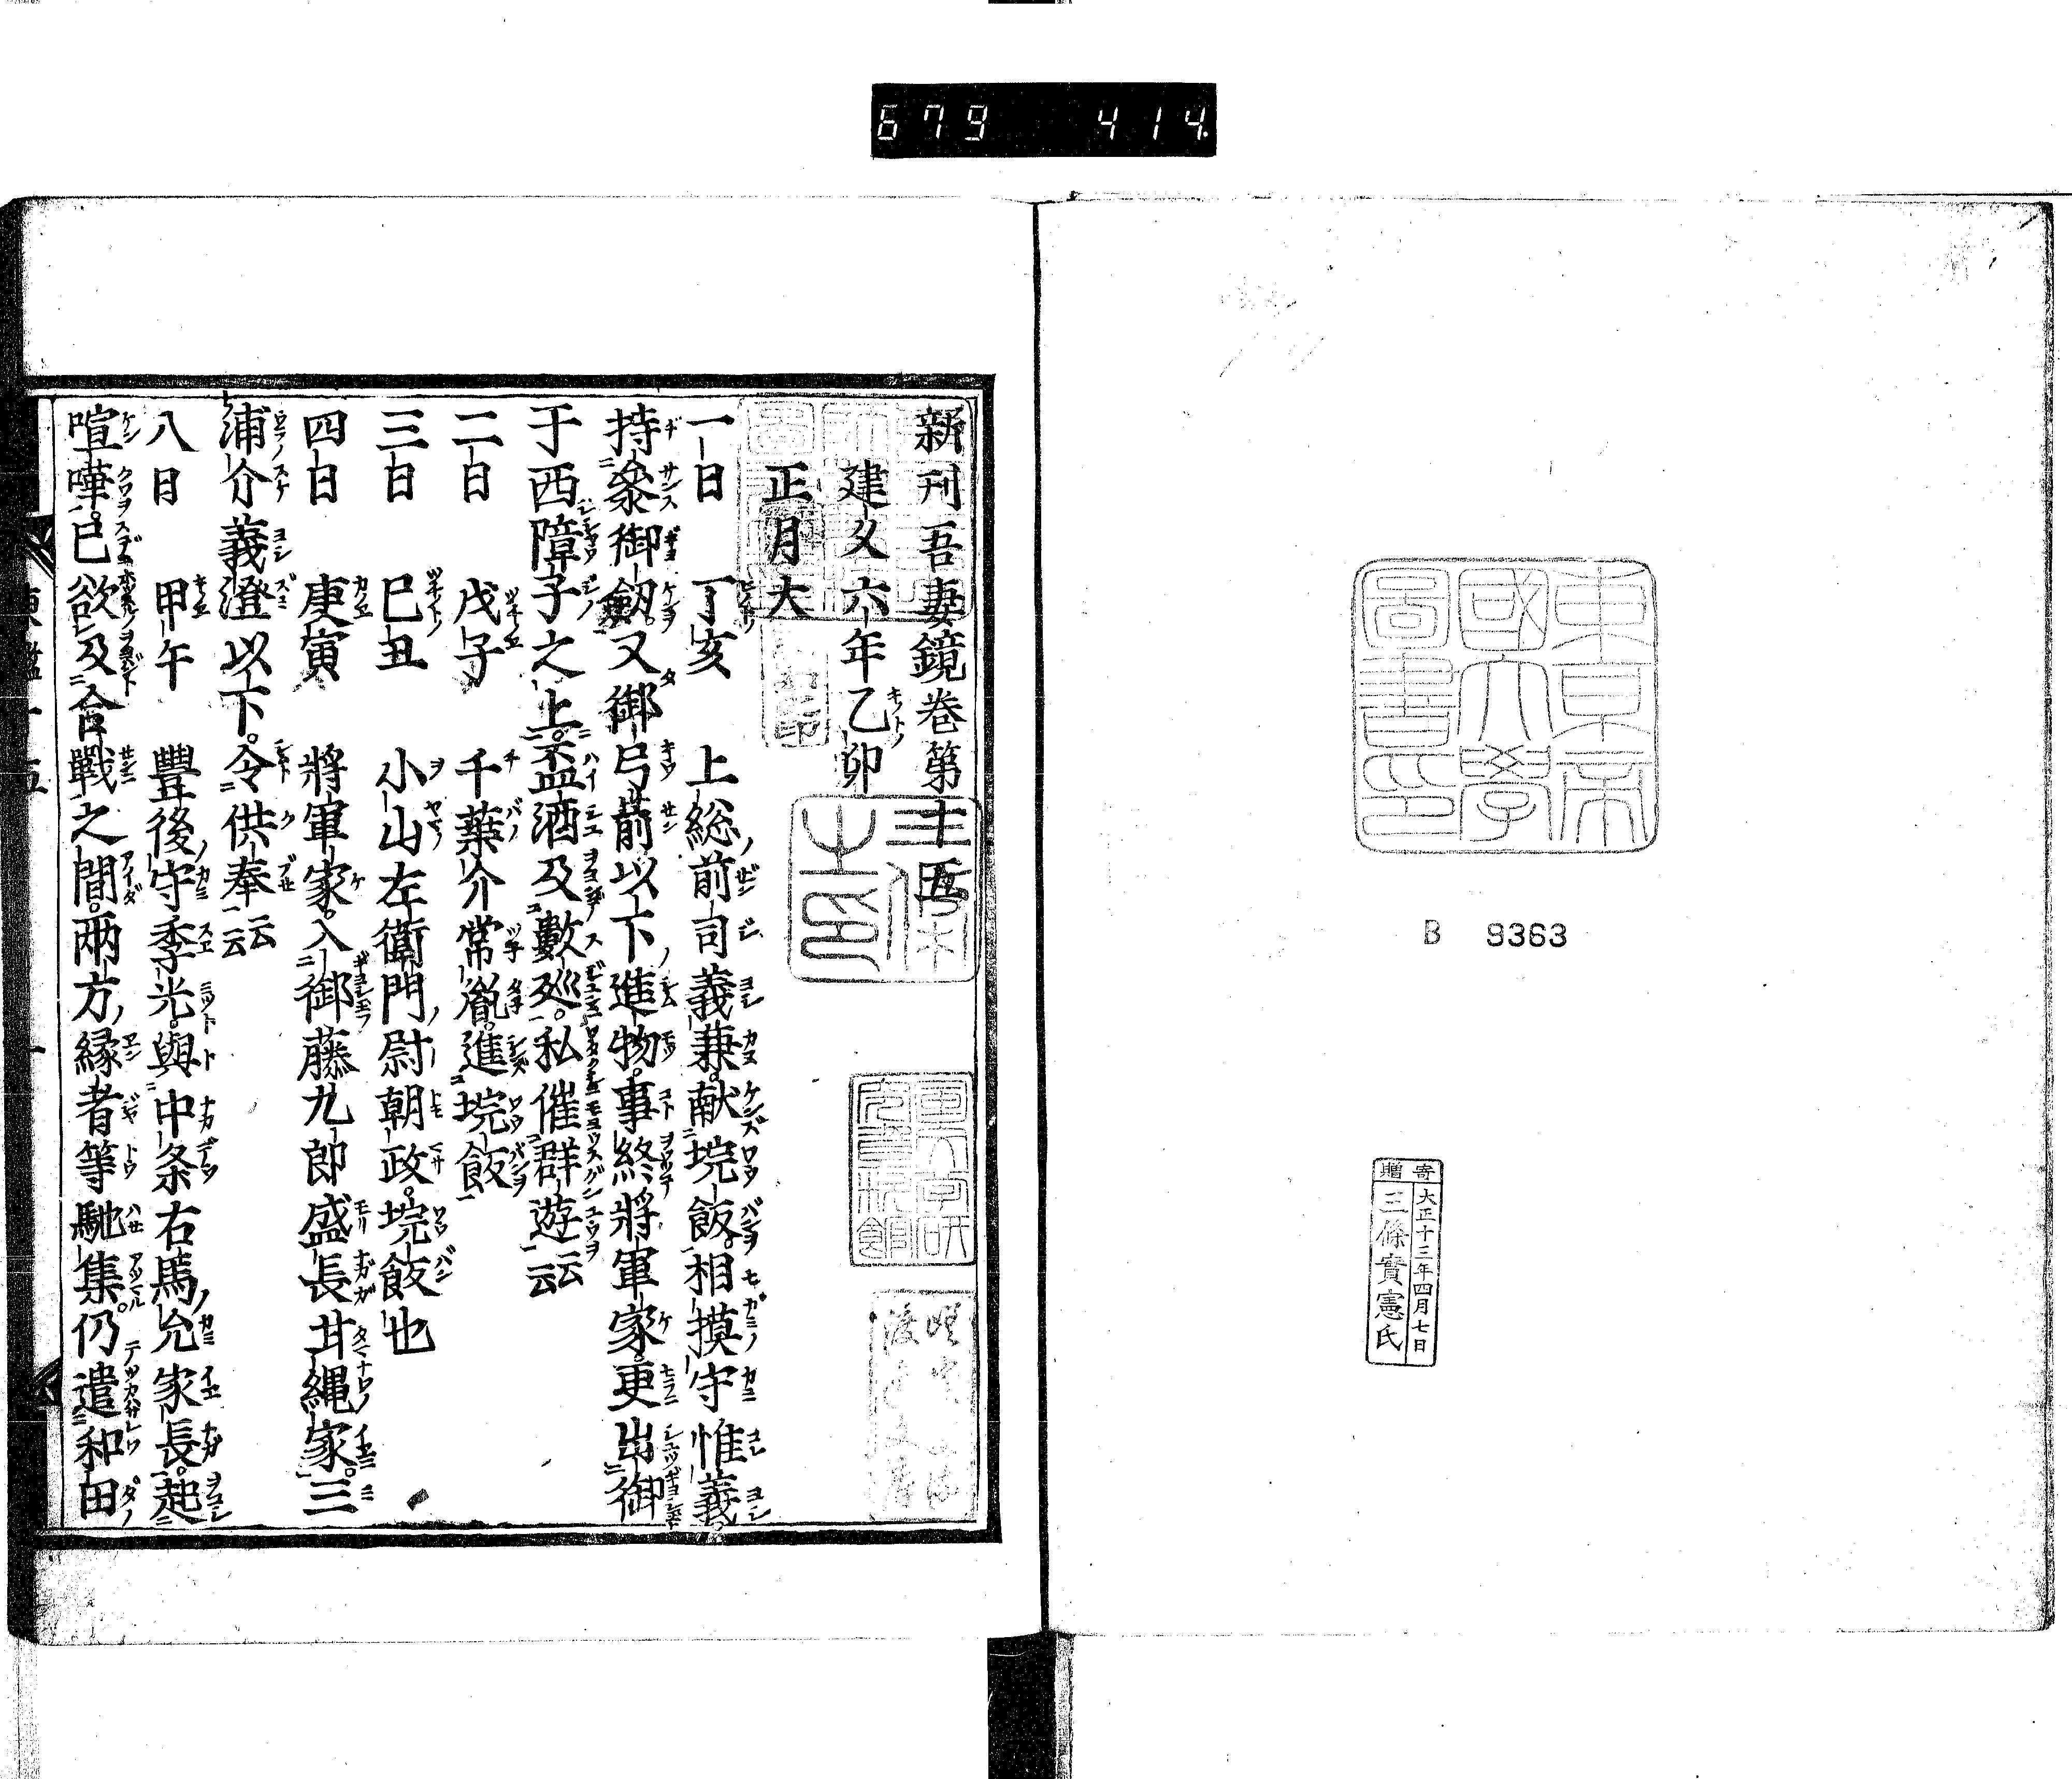 679 414
東京帝
國大學
圖書印
B 9363
寄贈
大正十三年四月七日
三條實憲氏
新刊吾妻鏡巻第十五
建久六年乙卯
正月大
一日 丁亥 上総前司義兼献垸飯相摸守惟義
持参御劔又御弓箭以下進物事終将軍家更出御
于西障子之上盃酒及數巡私催群遊云云
二日 戊子 千葉介常胤進垸飯
三日 巳丑 小山左衛門尉朝政垸飯也
四日 庚寅 将軍家入御藤九郎盛長甘縄家三
浦介義澄以下令供奉云云
八日 甲午 豊後守季光與中条右馬允家長起
喧嘩已欲及合戰之間兩方縁者等馳集仍遣和田